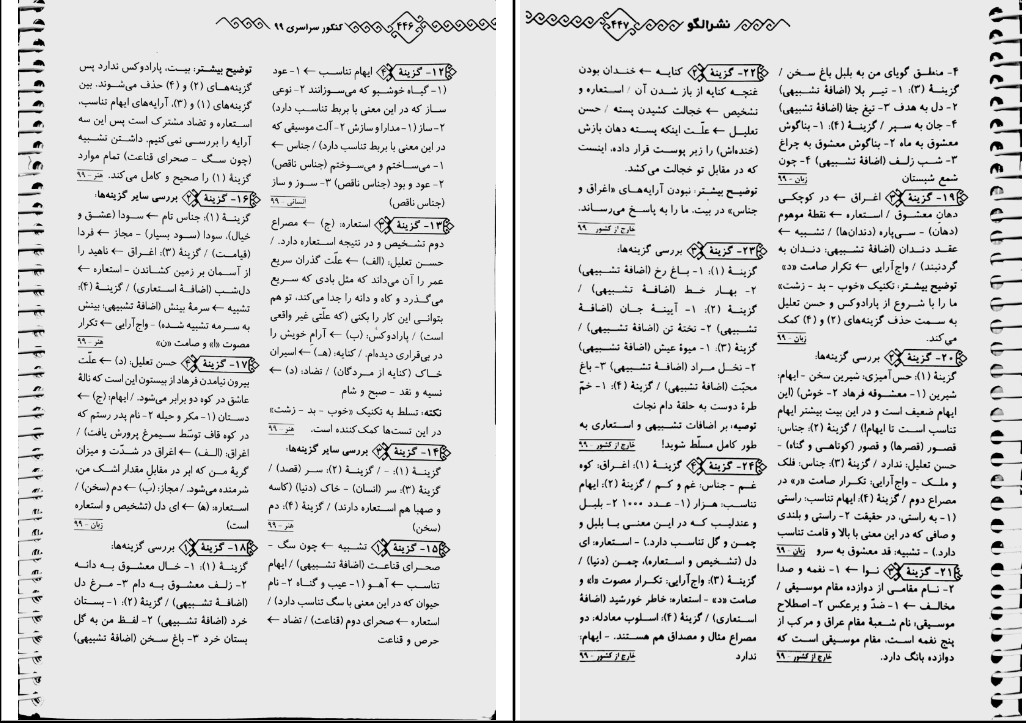 ۴۴۶ کنکور سراسری ۹۹
۱۲- گزینهٔ ۴ ایهام تناسب ← ۱- عود
(۱- گیاه خوشبو که می‌سوزانند ۲- نوعی
ساز که در این معنی با بربط تناسب دارد)
۲- ساز (۱- مدارا و سازش ۲- آلت موسیقی که
در این معنی با بربط تناسب دارد) / جناس ←
۱- می‌ساختم و می‌سوختم (جناس ناقص)
۲- عود و بود (جناس ناقص) ۳- سوز و ساز
(جناس ناقص) انسانی - ۹۹
۱۳- گزینهٔ ۳ استعاره: (ج) ← مصراع
دوم تشخیص و در نتیجه استعاره دارد. /
حسن تعلیل: (الف) ← علّت گذران سریع
عمر را آن می‌داند که مثل بادی که سریع
می‌گذرد و کاه و دانه را جدا می‌کند، تو هم
بتوانی این کار را بکنی (که علّتی غیر واقعی
است) / پارادوکس: (ب) ← آرام خویش را
در بی‌قراری دیده‌ام. / کنایه: (هـ) ← اسیران
خاک (کنایه از مردگان) / تضاد: (د) ←
نسیه و نقد - صبح و شام
نکته: تسلط به تکنیک «خوب - بد - زشت»
در این تست‌ها کمک کننده است. هنر - ۹۹
۱۴- گزینهٔ ۳ بررسی سایر گزینه‌ها:
گزینهٔ (۱): - / گزینهٔ (۲): سر (قصد) /
گزینهٔ (۳): سر (انسان) - خاک (دنیا) (کاسه
و صهبا هم استعاره دارند) / گزینهٔ (۴): دم
(سخن) هنر - ۹۹
۱۵- گزینهٔ ۱ تشبیه ← چون سگ -
صحرای قناعت (اضافهٔ تشبیهی) / ایهام
تناسب ← آهو (۱- عیب و گناه ۲- نام
حیوان که در این معنی با سگ تناسب دارد) /
استعاره ← صحرای دوم (قناعت) / تضاد ←
حرص و قناعت
توضیح بیشتر: بیت، پارادوکس ندارد پس
گزینه‌های (۲) و (۴) حذف می‌شوند. بین
گزینه‌های (۱) و (۳)، آرایه‌های ایهام تناسب،
استعاره و تضاد مشترک است پس این سه
آرایه را بررسی نمی‌کنیم. داشتن تشبیه
(چون سگ - صحرای قناعت) تمام موارد
گزینهٔ (۱) را صحیح و کامل می‌کند. هنر - ۹۹
۱۶- گزینهٔ ۲ بررسی سایر گزینه‌ها:
گزینهٔ (۱): جناس تام ← سودا (عشق و
خیال)، سودا (سود بسیار) - مجاز ← فردا
(قیامت) / گزینهٔ (۳): اغراق ← ناهید را
از آسمان بر زمین کشاندن - استعاره ←
دل‌شب (اضافهٔ استعاری) / گزینهٔ (۴):
تشبیه ← سرمهٔ بینش (اضافهٔ تشبیهی: بینش
به سرمه تشبیه شده) - واج‌آرایی ← تکرار
مصوت «ا» و صامت «ن» هنر - ۹۹
۱۷- گزینهٔ ۴ حسن تعلیل: (د) ← علّت
بیرون نیامدن فرهاد از بیستون این است که نالهٔ
عاشق در کوه دو برابر می‌شود. / ایهام: (ج) ←
دستان (۱- مکر و حیله ۲- نام پدر رستم که
در کوه قاف توسّط سیمرغ پرورش یافت) /
اغراق: (الف) ← اغراق در شدّت و میزان
گریهٔ من که ابر در مقابل مقدار اشک من،
شرمنده می‌شود. / مجاز: (ب) ← دم (سخن) /
استعاره: (ه) ← ای دل (تشخیص و استعاره
است) زبان - ۹۹
۱۸- گزینهٔ ۱ بررسی گزینه‌ها:
گزینهٔ (۱): ۱- خال معشوق به دانه
۲- زلف معشوق به دام ۳- مرغ دل
(اضافهٔ تشبیهی) / گزینهٔ (۲): ۱- بستان
خرد (اضافهٔ تشبیهی) ۲- لفظ من به گل
بستان خرد ۳- باغ سخن (اضافهٔ تشبیهی)
نشرالگو ۴۴۷
۴- منطق گویای من به بلبل باغ سخن /
گزینهٔ (۳): ۱- تیر بلا (اضافهٔ تشبیهی)
۲- دل به هدف ۳- تیغ جفا (اضافهٔ تشبیهی)
۴- جان به سپر / گزینهٔ (۴): ۱- بناگوش
معشوق به ماه ۲- بناگوش معشوق به چراغ
۳- شب زلف (اضافهٔ تشبیهی) ۴- چون
شمع شبستان زبان - ۹۹
۱۹- گزینهٔ ۳ اغراق ← در کوچکی
دهان معشوق / استعاره ← نقطهٔ موهوم
(دهان) - سی‌پاره (دندان‌ها) / تشبیه ←
عقد دندان (اضافهٔ تشبیهی: دندان به
گردنبند) / واج‌آرایی ← تکرار صامت «د»
توضیح بیشتر: تکنیک «خوب - بد - زشت»
ما را با شروع از پارادوکس و حسن تعلیل
به سمت حذف گزینه‌های (۲) و (۴) کمک
می‌کند. زبان - ۹۹
۲۰- گزینهٔ ۳ بررسی گزینه‌ها:
گزینهٔ (۱): حس‌آمیزی: شیرین سخن - ایهام:
شیرین (۱- معشوقه فرهاد ۲- خوش) (این
ایهام ضعیف است و در این بیت بیشتر ایهام
تناسب است تا ایهام!) / گزینهٔ (۲): جناس:
قصور (قصرها) و قصور (کوتاهی و گناه) -
حسن تعلیل: ندارد / گزینهٔ (۳): جناس: فلک
و ملک - واج‌آرایی: تکرار صامت «ر» در
مصراع دوم / گزینهٔ (۴): ایهام تناسب: راستی
(۱- به راستی، در حقیقت ۲- راستی و بلندی
و صافی که در این معنی با بالا و قامت تناسب
دارد.) - تشبیه: قد معشوق به سرو زبان - ۹۹
۲۱- گزینهٔ ۳ نوا ← ۱- نغمه و صدا
۲- نام مقامی از دوازده مقام موسیقی /
مخالف ← ۱- ضدّ و برعکس ۲- اصطلاح
موسیقی: نام شعبهٔ مقام عراق و مرکب از
پنج نغمه است، مقام موسیقی است که
دوازده بانگ دارد. خارج از کشور - ۹۹
۲۲- گزینهٔ ۲ کنایه ← خندان بودن
غنچه کنایه از باز شدن آن / استعاره و
تشخیص ← خجالت کشیدن پسته / حسن
تعلیل ← علّت اینکه پسته دهان بازش
(خنده‌اش) را زیر پوست قرار داده، اینست
که در مقابل تو خجالت می‌کشد.
توضیح بیشتر: نبودن آرایه‌های «اغراق و
جناس» در بیت، ما را به پاسخ می‌رساند.
خارج از کشور - ۹۹
۲۳- گزینهٔ ۳ بررسی گزینه‌ها:
گزینهٔ (۱): ۱- باغ رخ (اضافهٔ تشبیهی)
۲- بهار خط (اضافهٔ تشبیهی) /
گزینهٔ (۲): ۱- آیینهٔ جان (اضافهٔ
تشبیهی) ۲- تختهٔ تن (اضافهٔ تشبیهی) /
گزینهٔ (۳): ۱- میوهٔ عیش (اضافهٔ تشبیهی)
۲- نخل مراد (اضافهٔ تشبیهی) ۳- باغ
محبّت (اضافهٔ تشبیهی) / گزینهٔ (۴): ۱- خمّ
طرهٔ دوست به حلقهٔ دام نجات
توصیه: بر اضافات تشبیهی و استعاری به
طور کامل مسلّط شوید! خارج از کشور - ۹۹
۲۴- گزینهٔ ۴ گزینهٔ (۱): اغراق: کوه
غم - جناس: غم و کم / گزینهٔ (۲): ایهام
تناسب: هزار (۱- عدد ۱۰۰۰ ۲- بلبل
و عندلیب که در این معنی با بلبل و
چمن و گل تناسب دارد.) - استعاره: ای
دل (تشخیص و استعاره)، چمن (دنیا) /
گزینهٔ (۳): واج‌آرایی: تکرار مصوت «ا» و
صامت «د» - استعاره: خاطر خورشید (اضافهٔ
استعاری) / گزینهٔ (۴): اسلوب معادله: دو
مصراع مثال و مصداق هم هستند. - ایهام:
ندارد خارج از کشور - ۹۹